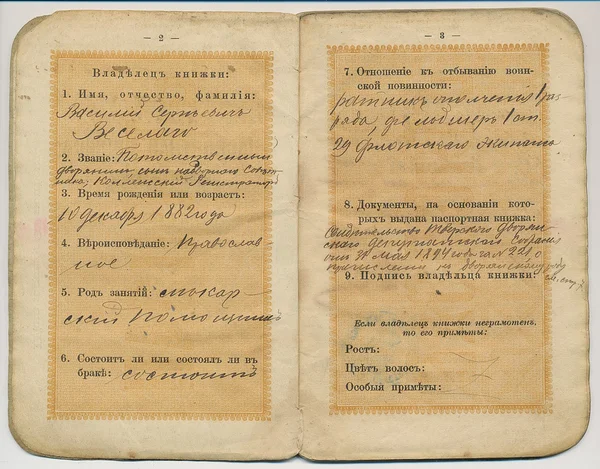 — 2 —
Владѣлецъ книжки:
1. Имя, отчество, фамилія:
Василій Сергѣевичъ
Веселаго
2. Званіе: Потомственный
дворянинъ, сынъ надворнаго Совѣт
ника, Коллежскій Регистраторъ
3. Время рожденія или возрастъ:
10 декабря 1882 года
4. Вѣроисповѣданіе: Православ
ное
5. Родъ занятій:
6. Состоитъ ли или состоялъ ли въ
бракѣ: состоитъ
— 3 —
7. Отношеніе къ отбыванію воин-
ской повинности:
ратникъ ополченія 1 раз
ряда,
29 флотскаго Экипажа
8. Документы, на основаніи кото-
рыхъ выдана паспортная книжка:
Свидѣтельство Тверского Дворян
скаго Депутатскаго Собранія
Мая 1894 года за №
о причисленіи къ дворянскому роду
9. Подпись владѣльца книжки:
Если владѣлецъ книжки неграмотенъ,
то его примѣты:
Ростъ:
Цвѣтъ волосъ:
Особыя примѣты: